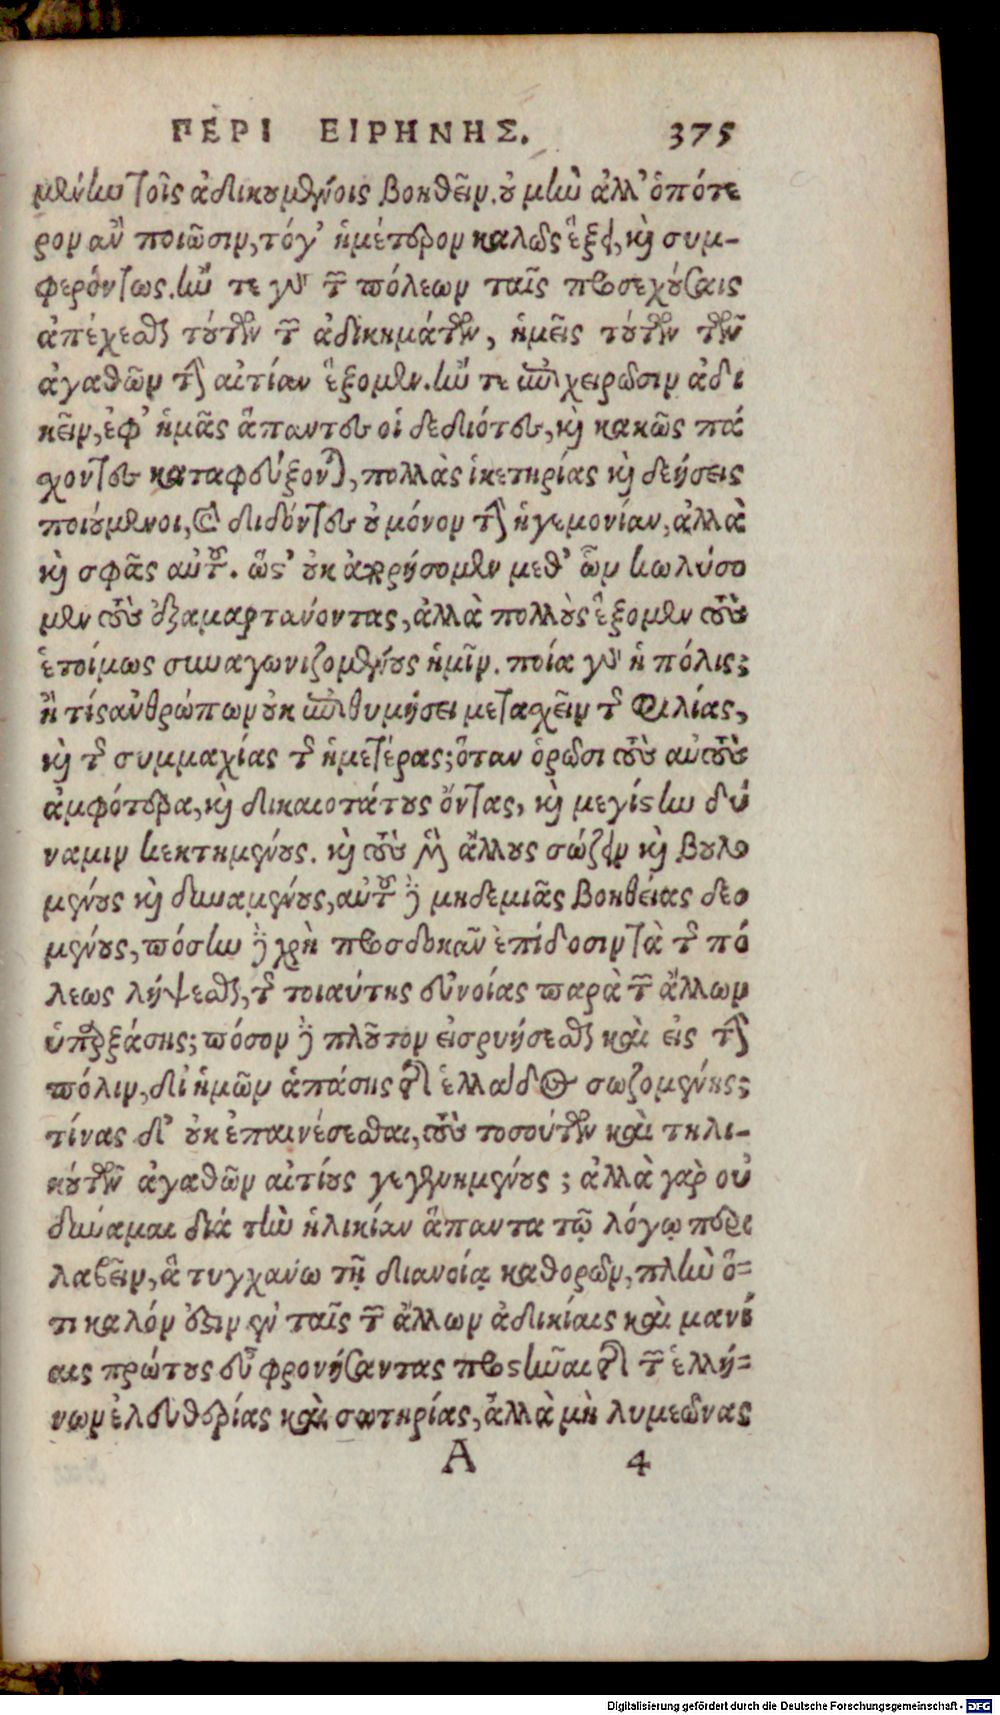 ΠΕΡΙ ΕΙΡΗΝΗΣ. 375
μένην τοῖς ἀδικουμένοις βοηθεῖν. οὐ μὴν ἀλλ' ὁπότε
ρον ἂν ποιῶσιν, τόγ' ἡμέτερον καλῶς ἕξει, καὶ συμ-
φερόντως. ἤν τε γὰρ τῶν πόλεων ταῖς προεχούσαις
ἀπέχεσθαι τούτων τῶν ἀδικημάτων, ἡμεῖς τούτων τῶν
ἀγαθῶν τὴν αἰτίαν ἕξομεν. ἤν τε ἐπιχειρῶσιν ἀδι
κεῖν, ἐφ' ἡμᾶς ἅπαντες οἱ δεδιότες, καὶ κακῶς πά
χοντες καταφεύξονται, πολλὰς ἱκετηρίας καὶ δεήσεις
ποιούμενοι, καὶ διδόντες οὐ μόνον τὴν ἡγεμονίαν, ἀλλὰ
καὶ σφᾶς αὐτούς. ὥστ' οὐκ ἀπορήσομεν μεθ' ὧν κωλύσο
μεν τοὺς ἐξαμαρτάνοντας, ἀλλὰ πολλοὺς ἕξομεν τοὺς
ἑτοίμως συναγωνιζομένους ἡμῖν. ποία γὰρ ἡ πόλις;
ἢ τίς ἀνθρώπων οὐκ ἐπιθυμήσει μετασχεῖν τῆς φιλίας,
καὶ τῆς συμμαχίας τῆς ἡμετέρας; ὅταν ὁρῶσι τοὺς αὐτοὺς
ἀμφότερα, καὶ δικαιοτάτους ὄντας, καὶ μεγίστην δύ
ναμιν κεκτημένους. καὶ τοὺς μὲν ἄλλους σώζειν καὶ βουλο
μένους καὶ δυναμένους, αὐτοὺς δὲ μηδεμιᾶς βοηθείας δεο
μένους, πόσην δὲ χρὴ προσδοκᾶν ἐπίδοσιν τὰ τῆς πό
λεως λήψεσθαι, τῆς τοιαύτης εὐνοίας παρὰ τῶν ἄλλων
ὑπαρξάσης; πόσον δὲ πλοῦτον εἰσρυήσεσθαι καὶ εἰς τὴν
πόλιν, δι' ἡμῶν ἁπάσης τῆς ἑλλάδος σωζομένης;
τίνας δ' οὐκ ἐπαινέσεσθαι, τοὺς τοσούτων καὶ τηλι-
κούτων ἀγαθῶν αἰτίους γεγενημένους; ἀλλὰ γὰρ οὐ
δύναμαι διά τὴν ἡλικίαν ἅπαντα τῷ λόγῳ περι
λαβεῖν, ἃ τυγχάνω τῇ διανοίᾳ καθορῶν, πλὴν ὅ-
τι καλόν ἐστιν ἐν ταῖς τῶν ἄλλων ἀδικίαις καὶ μανί
αις πρώτους εὖ φρονήσαντας προστῆναι τῆς τῶν ἑλλή-
νων ἐλευθερίας καὶ σωτηρίας, ἀλλὰ μὴ λυμεῶνας
A 4
Digitalisierung gefördert durch die Deutsche Forschungsgemeinschaft - DFG